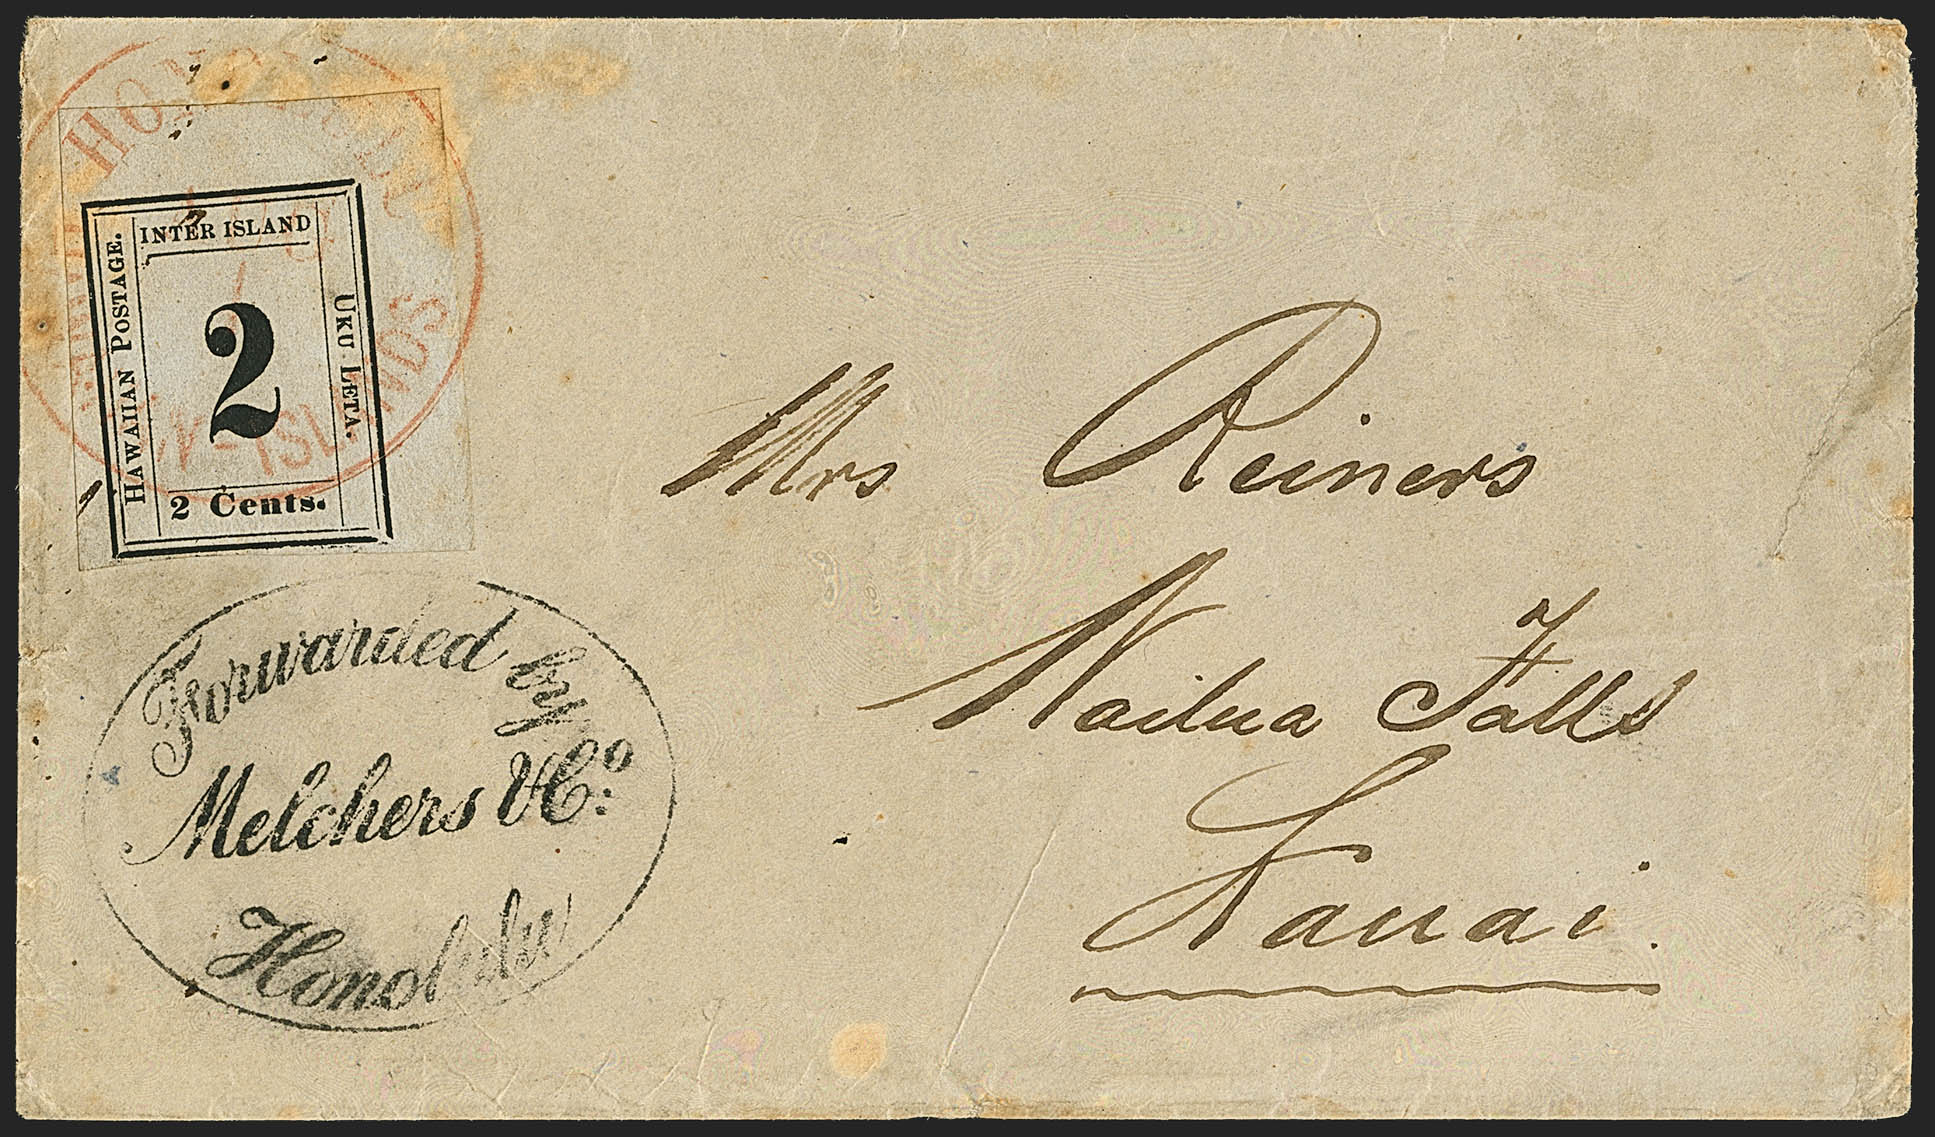 HONOLULU
HAWAIIAN-ISLANDS
INTER ISLAND
HAWAIIAN POSTAGE.
2
UKU LETA.
2 Cents.
Forwarded by
Melchers & Co.
Honolulu
Mrs Reiners
Wailua Falls
Kauai.